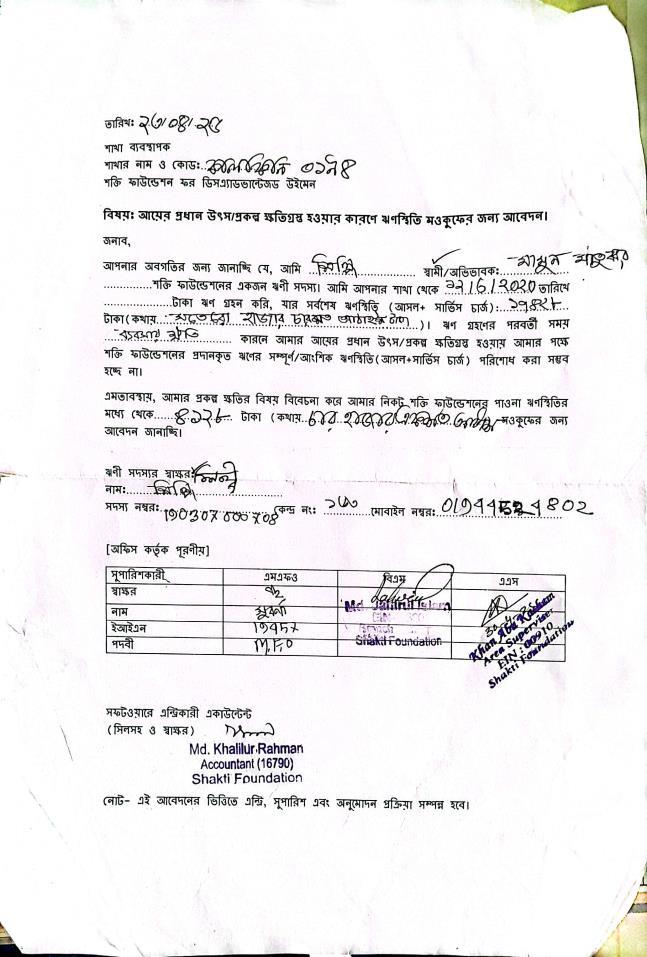 তারিখ: ২৩/০৪/২৫
শাখা ব্যবস্থাপক
শাখার নাম ও কোড: ০১৭৪
শক্তি ফাউন্ডেশন ফর ডিসএ্যাডভান্টেজড উইমেন
বিষয়: আয়ের প্রধান উৎস/প্রকল্প ক্ষতিগ্রস্থ হওয়ার কারণে ঋণস্থিতি মওকুফের জন্য আবেদন।
জনাব,
আপনার অবগতির জন্য জানাচ্ছি যে, আমি লিপি স্বামী/অভিভাবক: মামুন
শক্তি ফাউন্ডেশনের একজন ঋণী সদস্য। আমি আপনার শাখা থেকে তারিখে
টাকা ঋণ গ্রহন করি, যার সর্বশেষ ঋণস্থিতি (আসল+ সার্ভিস চার্জ): ১৭৪২৮
টাকা (কথায় সতেরো হাজার চারশত আঠাইশ টাকা)। ঋণ গ্রহণের পরবর্তী সময়
ব্যবসায় ক্ষতি কারনে আমার আয়ের প্রধান উৎস/প্রকল্প ক্ষতিগ্রস্থ হওয়ায় আমার পক্ষে
শক্তি ফাউন্ডেশনের প্রদানকৃত ঋণের সম্পূর্ণ/আংশিক ঋণস্থিতি(আসল+সার্ভিস চার্জ) পরিশোধ করা সম্ভব
হচ্ছে না।
এমতাবস্থায়, আমার প্রকল্প ক্ষতির বিষয় বিবেচনা করে আমার নিকট শক্তি ফাউন্ডেশনের পাওনা ঋণস্থিতির
মধ্যে থেকে ৪১২৮ টাকা (কথায় চার হাজার একশত আঠাশ মওকুফের জন্য
আবেদন জানাচ্ছি।
ঋণী সদস্যের স্বাক্ষর: লিপি
নাম: লিপি
সদস্য নম্বর: 190307000708 কেন্দ্র নং: মোবাইল নম্বর:
[অফিস কর্তৃক পূরণীয়]
সুপারিশকারী এমএফও বিএম এএস
স্বাক্ষর
নাম Md. Khan Abu Kashem
ইআইএন EIN Area Supervisor
পদবী M.F.O Shakti Foundation EIN: 00910
Shakti Foundation
সফটওয়ারে এন্ট্রিকারী একাউন্টেন্ট
(সিলসহ ও স্বাক্ষর)
Md. Khalilur Rahman
Accountant (16790)
Shakti Foundation
নোট- এই আবেদনের ভিত্তিতে এন্ট্রি, সুপারিশ এবং অনুমোদন প্রক্রিয়া সম্পন্ন হবে।